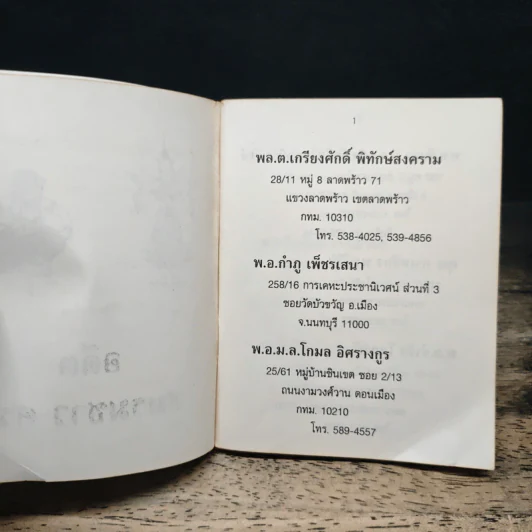 1
พล.ต.เกรียงศักดิ์ พิทักษ์สงคราม
28/11 หมู่ 8 ลาดพร้าว 71
แขวงลาดพร้าว เขตลาดพร้าว
กทม. 10310
โทร. 538-4025, 539-4856
พ.อ.กำภู เพ็ชรเสนา
258/16 การเคหะประชานิเวศน์ ส่วนที่ 3
ซอยวัดบัวขวัญ อ.เมือง
จ.นนทบุรี 11000
พ.อ.ม.ล.โกมล อิศรางกูร
25/61 หมู่บ้านชินเขต ซอย 2/13
ถนนงามวงศ์วาน ดอนเมือง
กทม. 10210
โทร. 589-4557